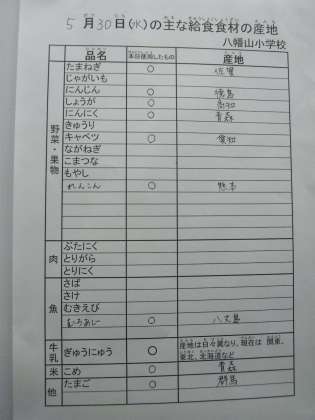 5月30日(水)の主な給食食材の産地
八幡山小学校
品名 本日使用したもの 産地
野菜・果物
たまねぎ ○ 佐賀
じゃがいも
にんじん ○ 徳島
しょうが ○ 高知
にんにく ○ 青森
きゅうり
キャベツ ○ 愛知
ながねぎ
こまつな
もやし
れんこん ○ 熊本
肉
ぶたにく
とりがら
とりにく
魚
さば
さけ
むきえび
むろあじ ○ 八丈島
牛乳
ぎゅうにゅう ○ 産地は日々異なり、現在は 関東、
東北、北海道など
米 こめ ○ 青森
他 たまご ○ 群馬